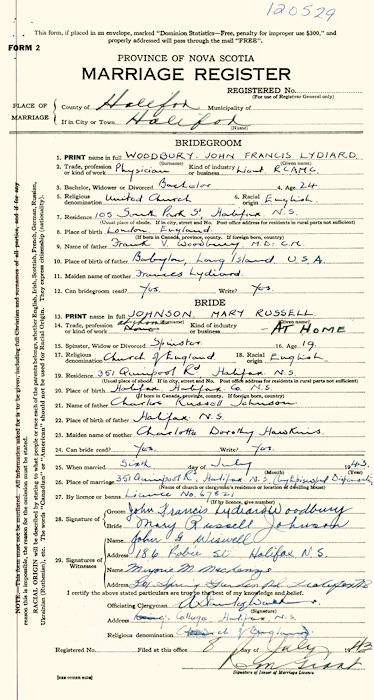 120529
This form, if placed in an envelope, marked "Dominion Statistics—Free, penalty for improper use $300," and
properly addressed will pass through the mail "FREE".
FORM 2
PROVINCE OF NOVA SCOTIA
MARRIAGE REGISTER
REGISTERED No.
(For use of Registrar General only)
PLACE OF MARRIAGE
County of Halifax Municipality of
If in City or Town Halifax
(Name)
BRIDEGROOM
1. PRINT name in full WOODBURY. JOHN FRANCIS LYDIARD.
(Surname) (Given name)
2. Trade, profession or kind of work Physician Kind of industry or business Lieut RCAMC.
3. Bachelor, Widower or Divorced Bachelor 4. Age 24
5. Religious denomination United Church 6. Racial origin English.
7. Residence 105 South Park St, Halifax N.S.
(Usual place of abode. If in city, street and No. Post office address for residents in rural parts not sufficient)
8. Place of birth London England.
(If born in Canada, province, county. If foreign born, country)
9. Name of father Frank V. Woodbury, M.D. C.M.
10. Place of birth Babylon, Long Island, U.S.A.
11. Maiden name of mother Frances Lydiard.
12. Can bridegroom read? Yes. Write? Yes.
BRIDE
13. PRINT name in full JOHNSON. MARY RUSSELL
(Surname) (Given name)
14. Trade, profession or kind of work Kind of industry or business AT HOME
15. Spinster, Widow or Divorced Spinster 16. Age 19.
17. Religious denomination Church of England. 18. Racial origin English
19. Residence 351 Quinpool Rd Halifax N.S.
(Usual place of abode. If in city, street and No. Post office address for residents in rural parts not sufficient)
20. Place of birth Halifax Halifax Co N.S.
(If born in Canada, province, county. If foreign born, country)
21. Name of father Charles Russell Johnson.
22. Place of birth Halifax N.S.
23. Maiden name of mother Charlotte Dorothy Hawkins.
24. Can bride read? Yes. Write? Yes.
25. When married Sixth day of July 1943.
(Month) (Year)
26. Place of marriage 351 Quinpool Rd, Halifax N.S. (by Episcopal Dispensation)
(Name of church or clergyman's residence or location of dwelling house)
27. By licence or banns Licence No. 67821
(If by licence, give number)
28. Signature of Groom John Francis Lydiard Woodbury
Bride Mary Russell Johnson
29. Signatures of Witnesses
Name John G Wiswell
Address 186 Robie St Halifax N.S.
Name M. MacKenzie
Address Spring Garden Rd
I certify the above stated particulars are true to the best of my knowledge and belief.
Officiating Clergyman A Stanley Walker
(Signature)
Address King's College, Halifax, N.S.
Religious denomination Church of England
Registered No. Filed at this office 8 July 1943
Signature of Issuer of Marriage Licence
[SEE OTHER SIDE]
NOTE—This form must not be mutilated. All information asked for is to be given, including full Christian and surnames of all parties, and if for any
reason this is impossible, the reason for the omission must be stated.
RACIAL ORIGIN will be described by stating to what people or race each of the parents belongs, whether English, Irish, Scottish, French, German, Russian,
Ukrainian (Ruthenian), etc. The words "Canadian" or "American" should not be used for Racial Origin. They express citizenship (nationality).